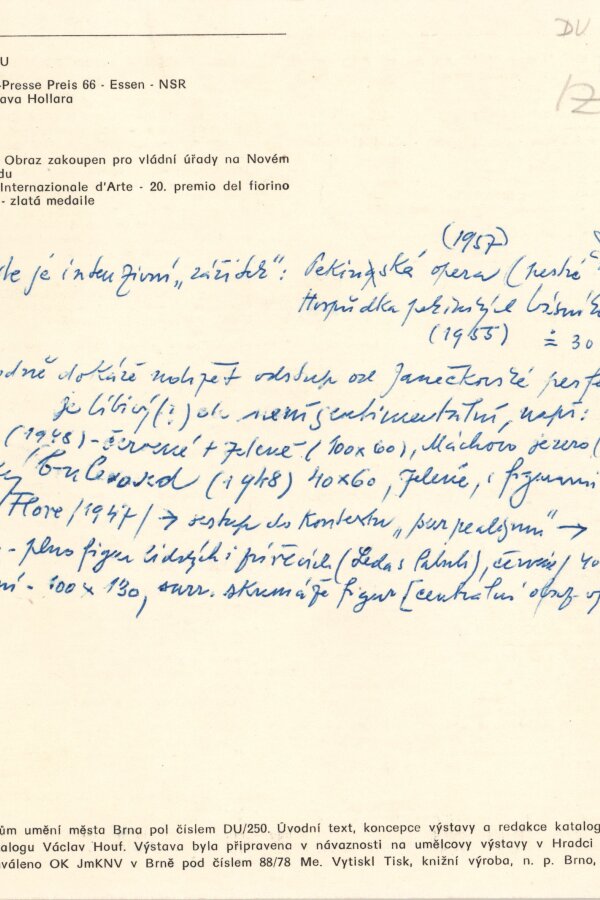 DU
U
-Presse Preis 66 - Essen - NSR
ava Hollara
Obraz zakoupen pro vládní úřady na Novém
du
Internazionale d'Arte - 20. premio del fiorino
- zlatá medaile
(1957)
je intenzivní „zážitek": Pekingská opera (pestré
Hospůdka pekinských básníků
(1955) ≐ 30
dokáže udržet odstup od Janečkovské
je líbivý(?) ale není sentimentální, např:
(1948) - červené + zelené (100x60), Máchovo jezero (
(1948) 40x60, zelené, s figurami
Flore /1947/ → sestup do kontextu „surrealismu" →
- plno figur lidských i (Leda s Labutí), červené / 40
ní - 100 x 130, surr. skrumáže figur [centrální
ům umění města Brna pol číslem DU/250. Úvodní text, koncepce výstavy a redakce katalog
alogu Václav Houf. Výstava byla připravena v návaznosti na umělcovy výstavy v Hradci
váleno OK JmKNV v Brně pod číslem 88/78 Me. Vytiskl Tisk, knižní výroba, n. p. Brno,